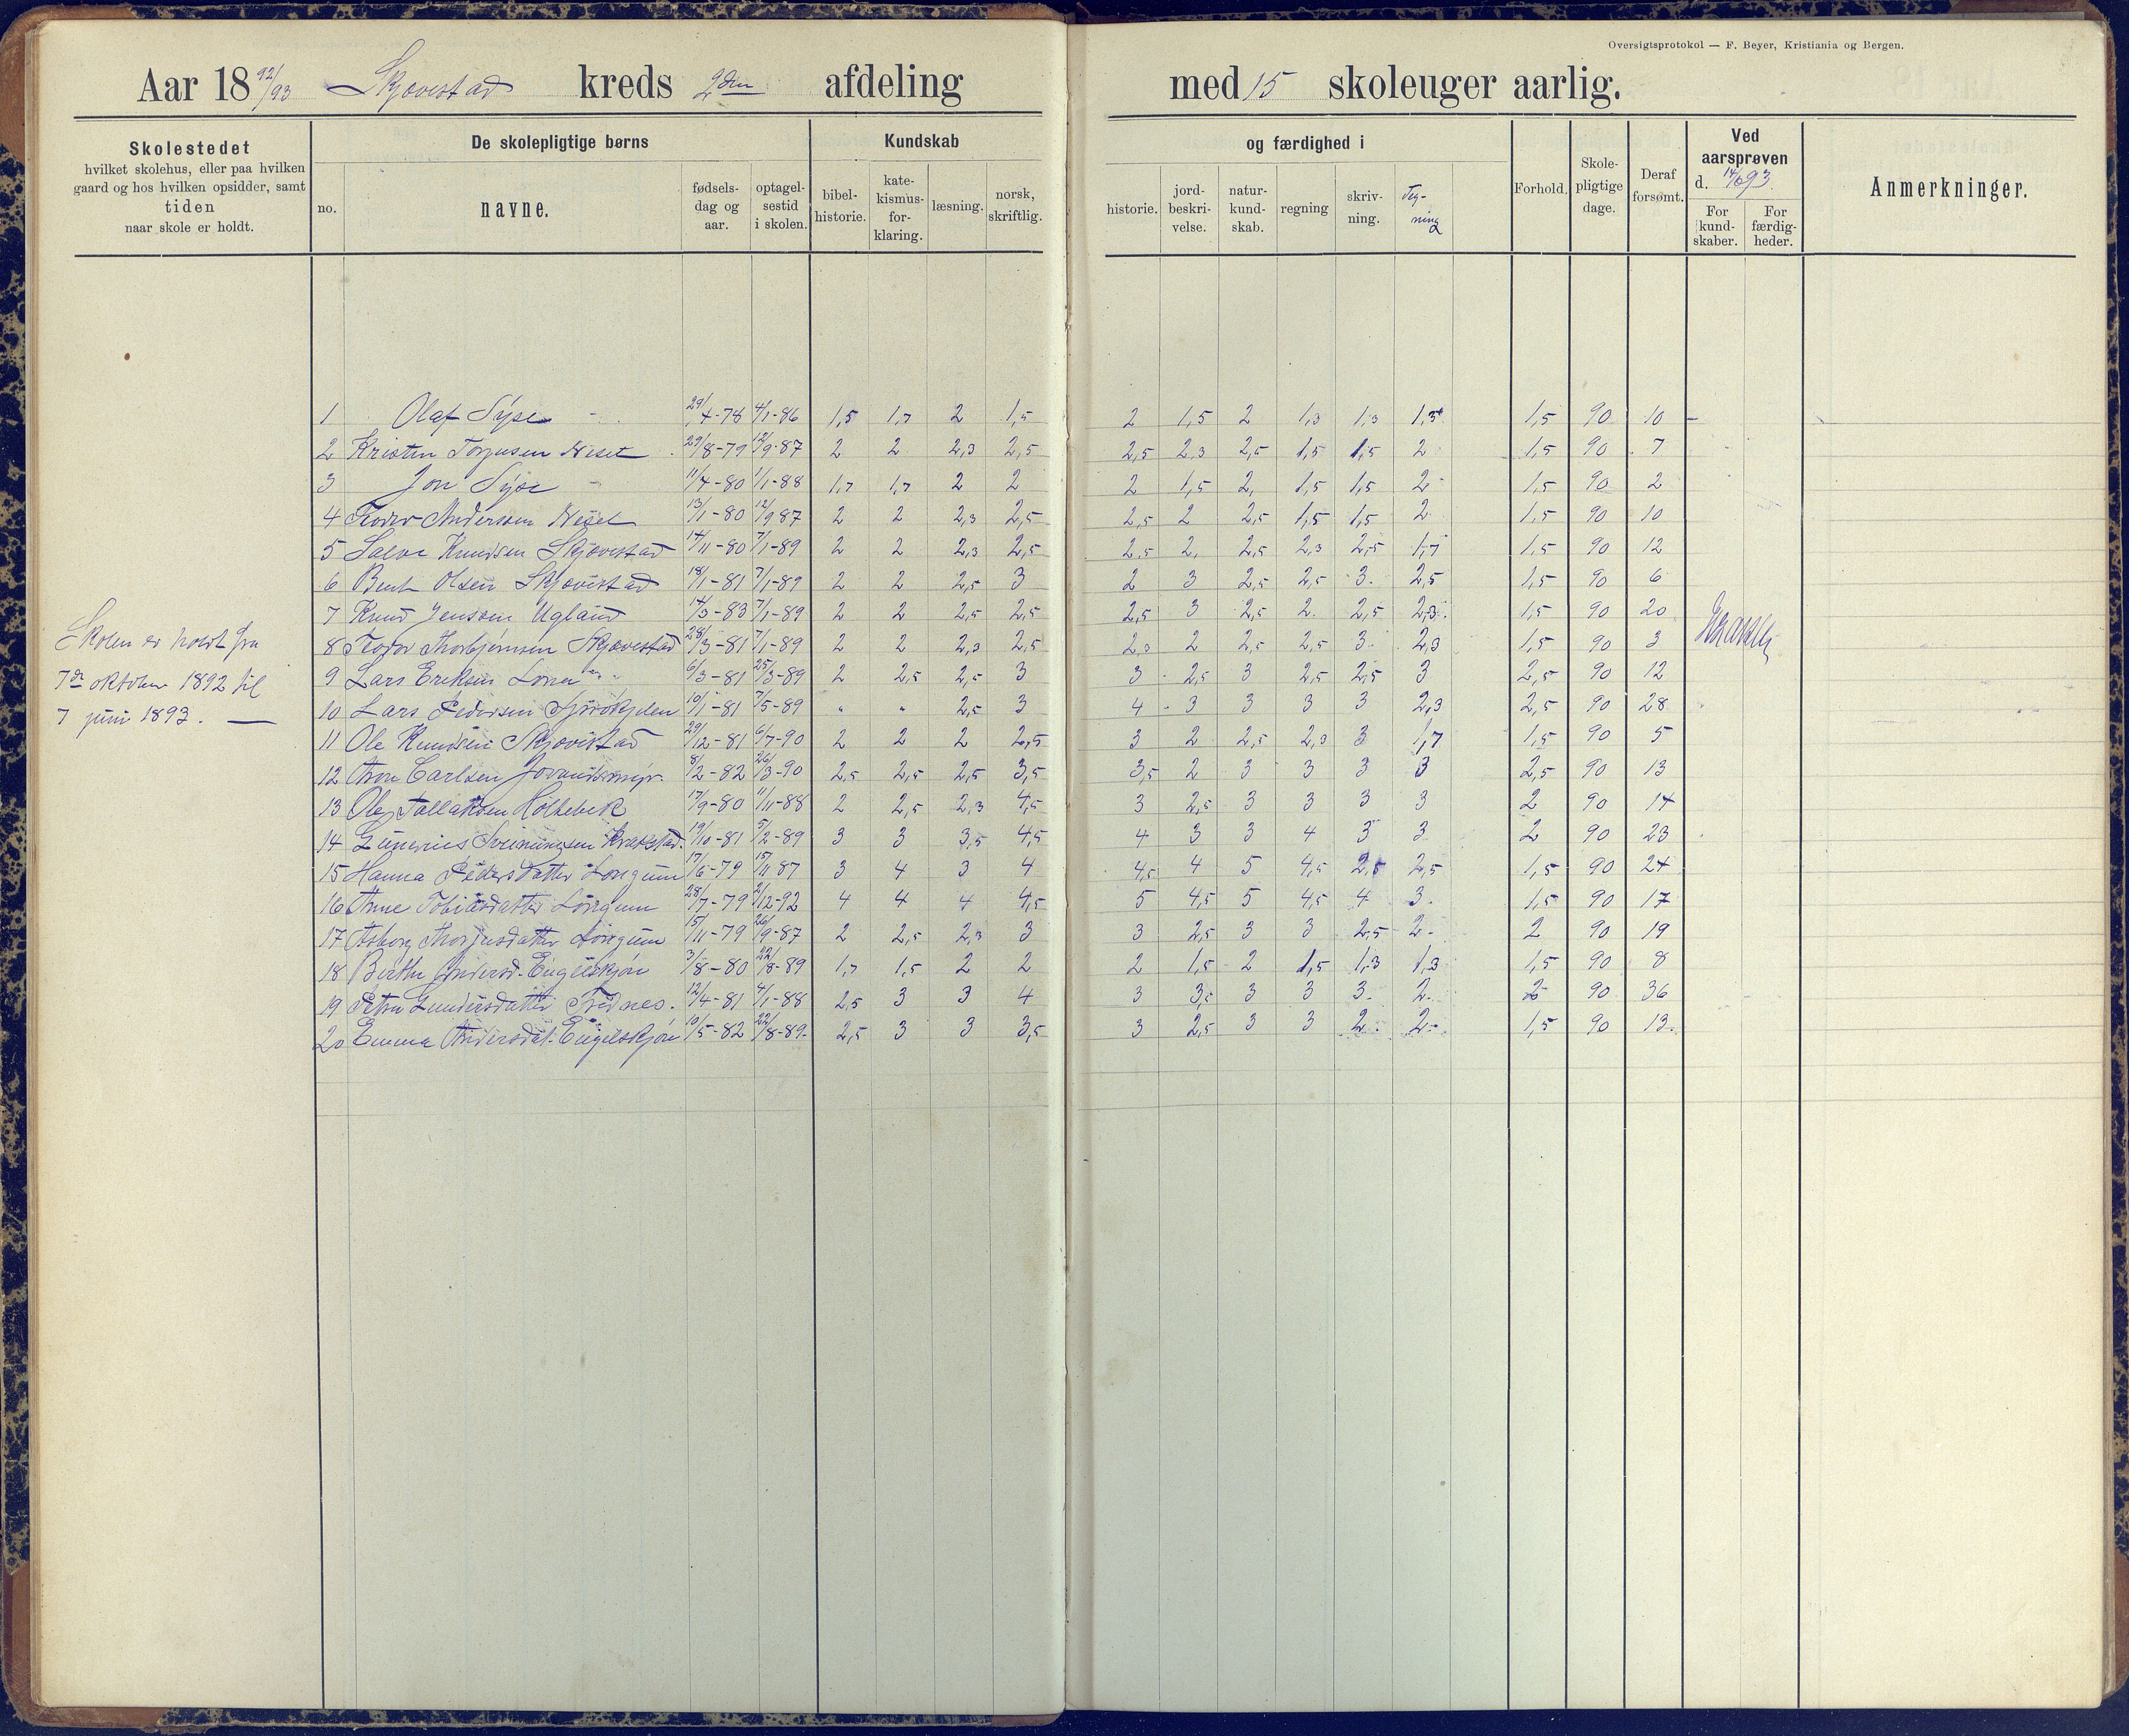 Oversigtsprotokol — F. Beyer, Kristiania og Bergen.
Aar 18 92/93 Skjøvestad kreds 2den afdeling med 15 skoleuger aarlig.
Skolestedet
hvilket skolehus, eller paa hvilken
gaard og hos hvilken opsidder, samt
tiden
naar skole er holdt.
De skolepligtige børns
no.
navne.
fødsels-
dag og
aar.
optagel-
sestid
i skolen.
Kundskab
bibel-
historie.
kate-
kismus-
for-
klaring.
læsning.
norsk,
skriftlig.
og færdighed i
historie.
jord-
beskri-
velse.
natur-
kund-
skab.
regning
skriv-
ning.
Teg-
ning
Forhold.
Skole-
pligtige
dage.
Deraf
forsømt.
Ved
aarsprøven
d. 14/6 93.
For
kund-
skaber.
For
færdig-
heder.
Anmerkninger.
1 Olaf Syse 29/4-78 4/1-86 1,5 1,7 2 1,5 2 1,5 2 1,3 1,3 1,3 1,5 90 10
2 Kristen Torjusen Neset 29/8-79 12/9-87 2 2 2,3 2,5 2,5 2,3 2,5 1,5 1,5 2 1,5 90 7
3 Jon Syse 11/4-80 1/1-88 1,7 1,7 2 2 2 1,5 2, 1,5 1,5 2 1,5 90 2
4 Teodor Anderssen Neset 13/1-80 12/9 87 2 2 2,3 2,5 2,5 2 2,5 1,5 1,5 2 1,5 90 10
5 Salve Knudsen Skjøvestad 14/11-80 7/1-89 2 2 2,3 2,5 2,5 2, 2,5 2,3 2,5 1,7 1,5 90 12
6 Bent Olsen Skjøvestad 18/1-81 7/1-89 2 2 2,5 3 2 3 2,5 2,5 3. 2,5 1,5 90 6
7 Knud Jenssen Ugland 14/3-83 7/1-89 2 2 2,5 2,5 2,5 3 2,5 2. 2,5 2,3. 1,5 90 20
8 Teodor Thorbjørnsen Skjøvestad 28/3-81 7/1-89 2 2 2,3 2,5 2,3 2 2,5 2,5 3 2,3 1,5 90 3
9 Lars Eriksen 6/3-81 25/3-89 2 2,5 2,5 3 3 2,5 3 2,5 2,5 3 2,5 90 12
10 Lars Pedersen 10/1-81 7/5-89 " " 2,5 3 4 3 3 3 3 2,3 2,5 90 28
11 Ole Knudsen Skjøvestad 29/12-81 6/7-90 2 2 2 2,5 3 2 2,5 2,3 3 1,7 1,5 90 5
12 Carlsen 8/2-82 26/3-90 2,5 2,5 2,5 3,5 3,5 2 3 3 3 3 2,5 90 13
13 Ole Tallaksen Holtebek 17/9-80 11/11-88 2 2,5 2,3 4,5 3 2,5 3 3 3 3 2 90 14
14 19/10-81 5/2-89 3 3 3,5 4,5 4 3 3 4 3 3 2 90 23
15 Hanna Pedersdatter Longum 17/6-79 15/11 87 3 4 3 4 4,5 4 5 4,5 2,5 2,5 1,5 90 24
16 Anne Tobiasdatter Longum 28/7-79 2/12-92 4 4 4 4,5 5 4,5 5 4,5 4 3. 1,5 90 17
17 Asborg Thorjusdatter Longum 15/11-79 26/9-87 2 2,5 2,3 3 3 2,5 3 3 2,5 2- 2 90 19
18 Berthe Andersd. Engelskjøn 3/8-80 22/8-89 1,7 1,5 2 2 2 1,5 2 1,5 1,3 1,3 1,5 90 8
19 Petra Gundersdatter 12/4-81 4/1-88 2,5 3 3 4 3 3,5 3 3 3. 2. 2 90 36
20 Emma Andersdat. Engelskjøn 10/5-82 22/8-89. 2,5 3 3 3,5 3 2,5 3 3 2. 2- 1,5 90 13.
Skolen er holdt fra
7de oktober 1892 til
7 juni 1893.